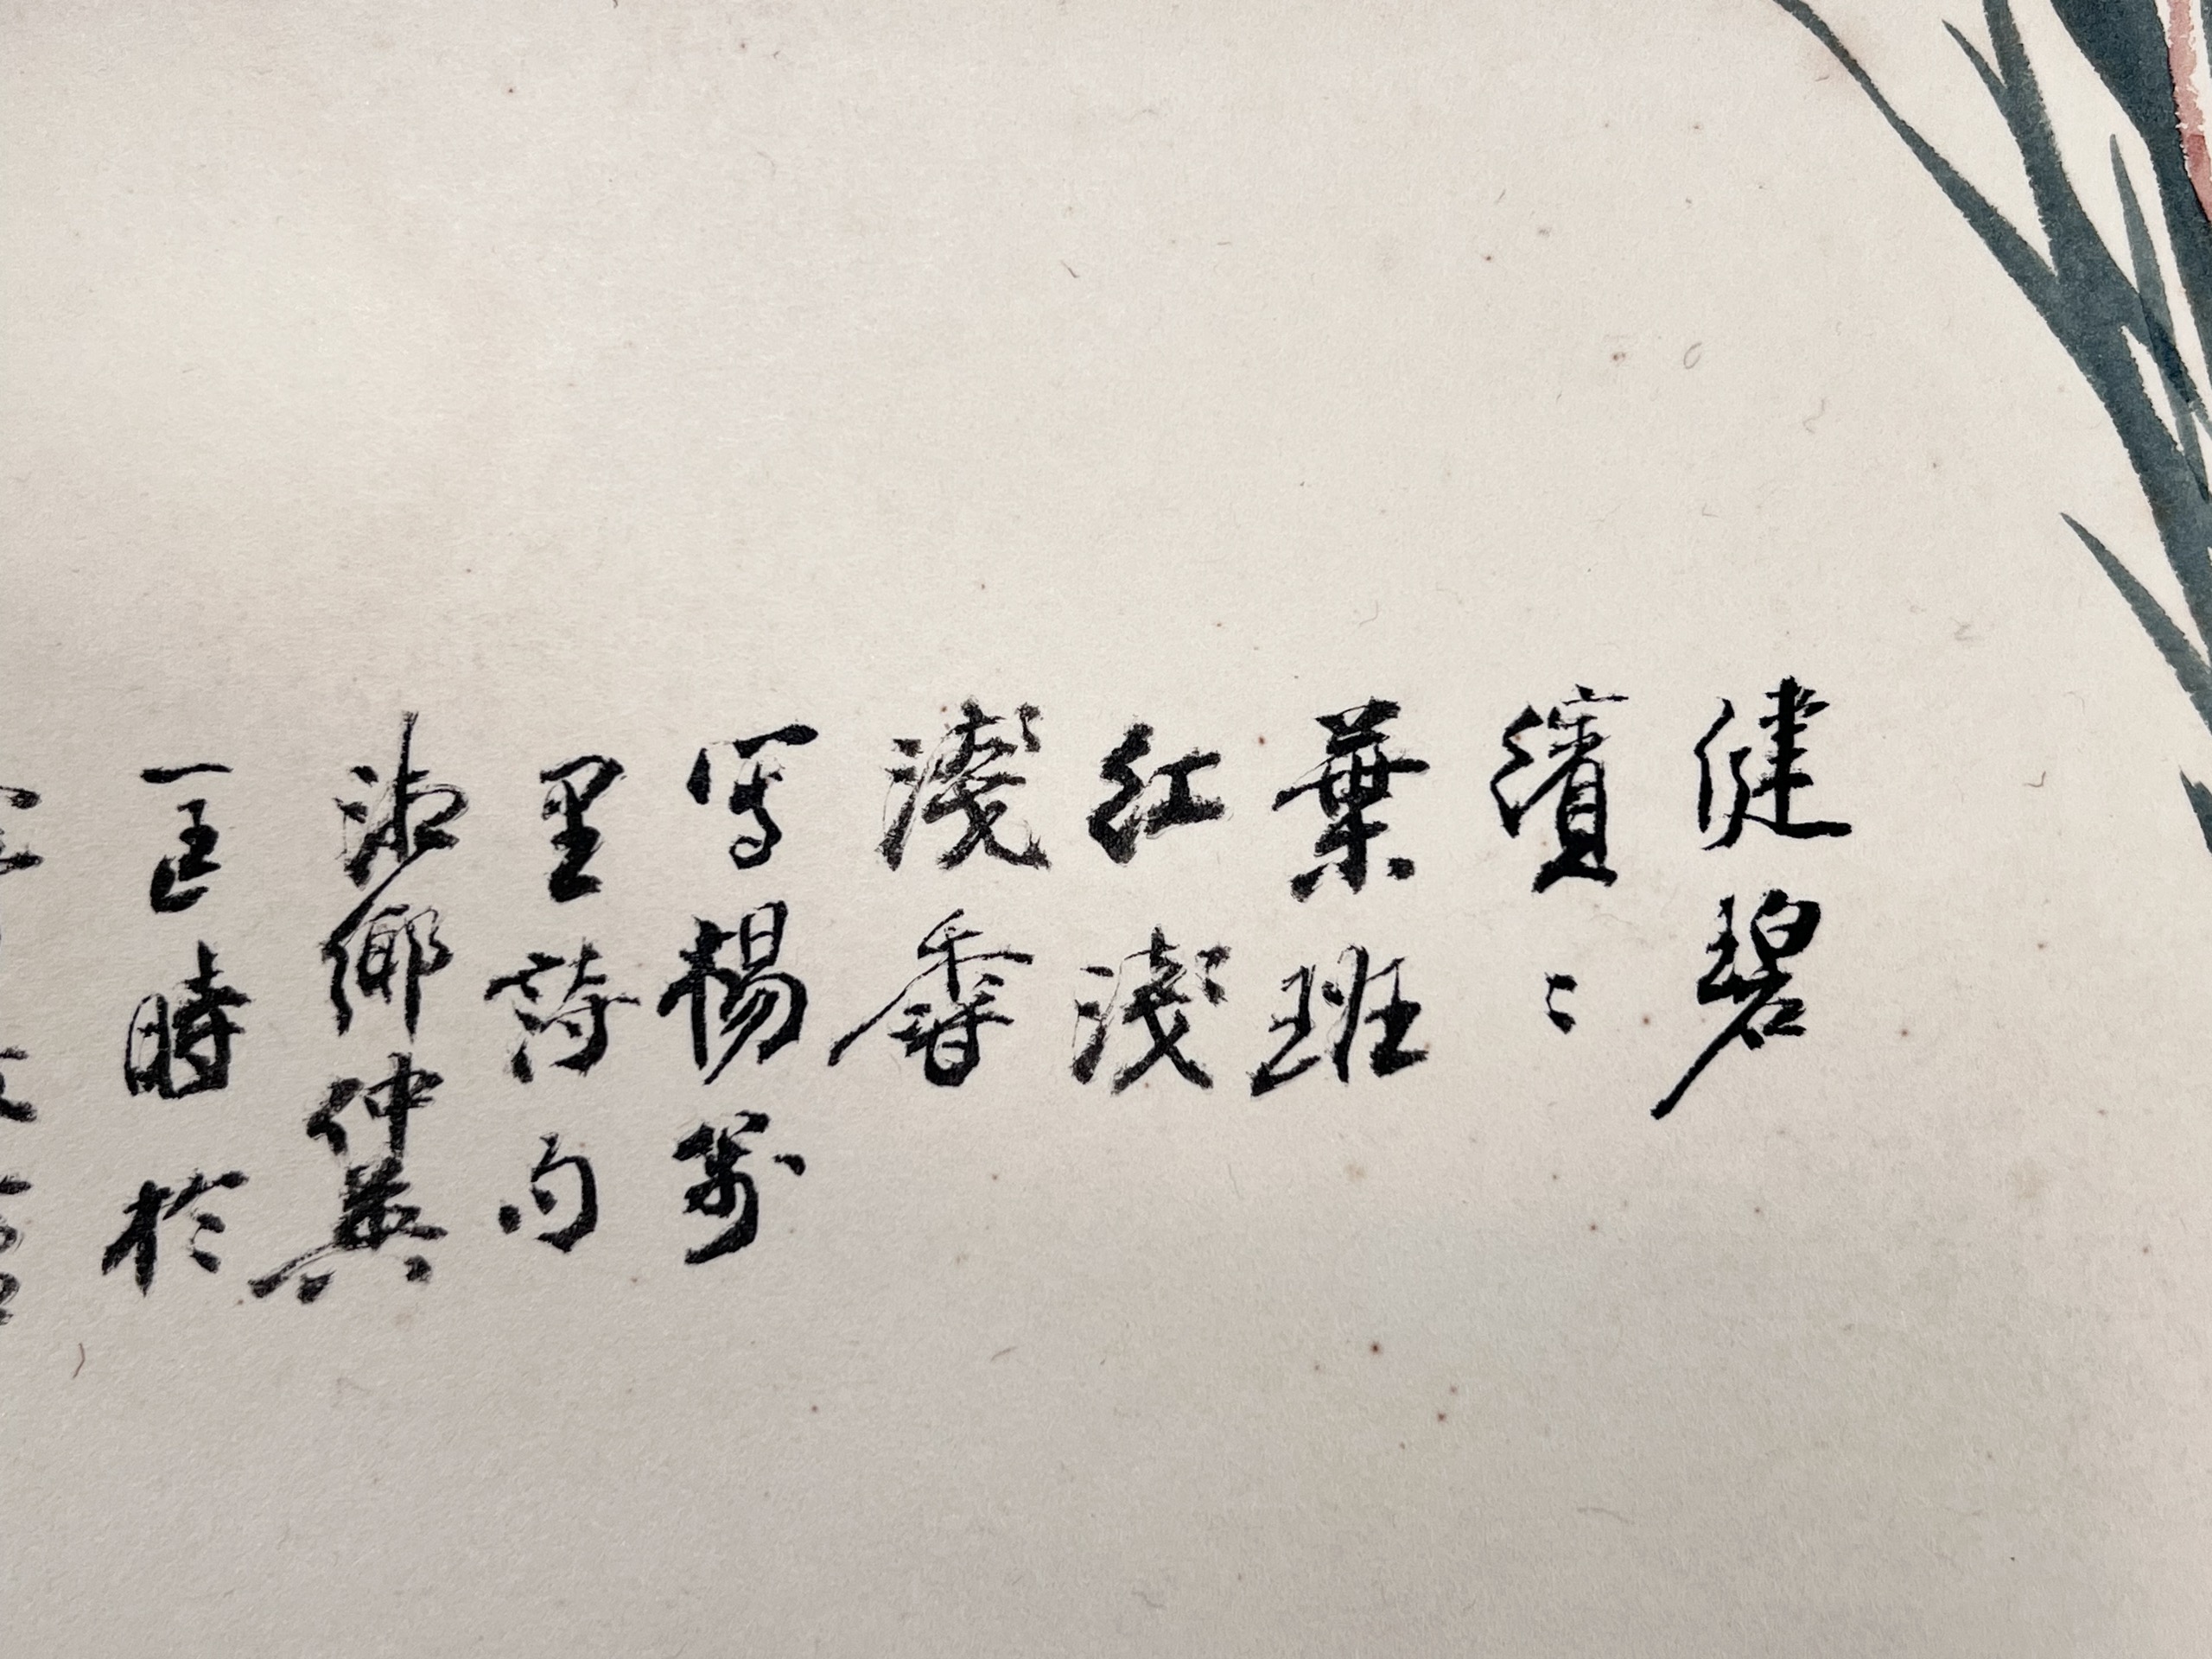 健碧
繽〻
葉班
紅淺
淺香
寫楊萬
里詩句
沾鄉仲英
一匡時於